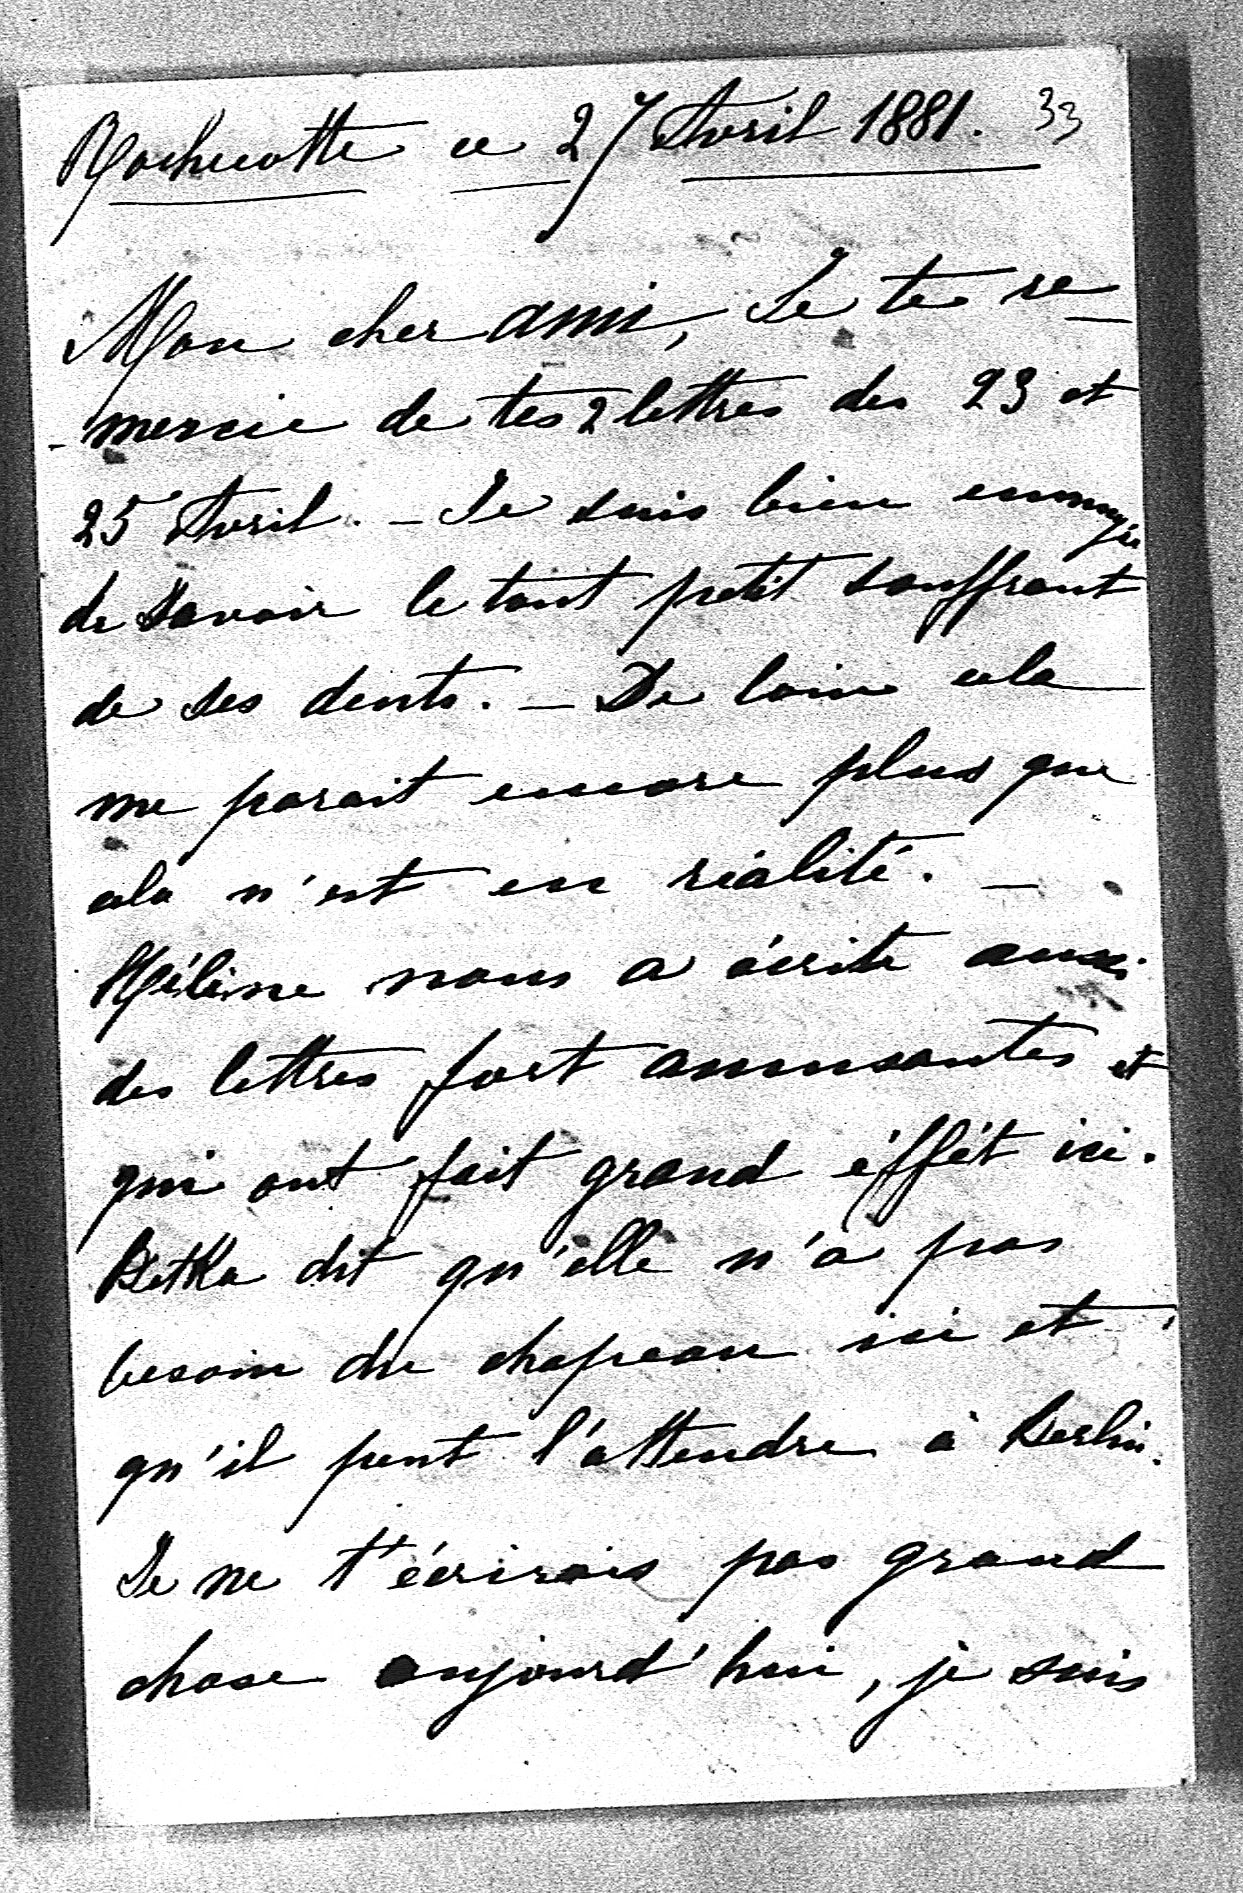 Rochecotte ce 27 Avril 1881. 33
Mon cher ami, Je te re-
-mercie de tes 2 lettres des 23 et
25 Avril. - Je suis bien ennuyée
de savoir le tout petit souffrant
de ses dents. - De loin cela
me parait encore plus que
cela n'est en réalité. -
Hélène nous a écrite aussi
des lettres fort amusantes et
qui ont fait grand éffét ici.
Betka dit qu'elle n'a pas
besoin du chapeau ici et
qu'il peut l'attendre à Berlin.
Je ne t'écrirais pas grand
chose aujourd'hui, je suis